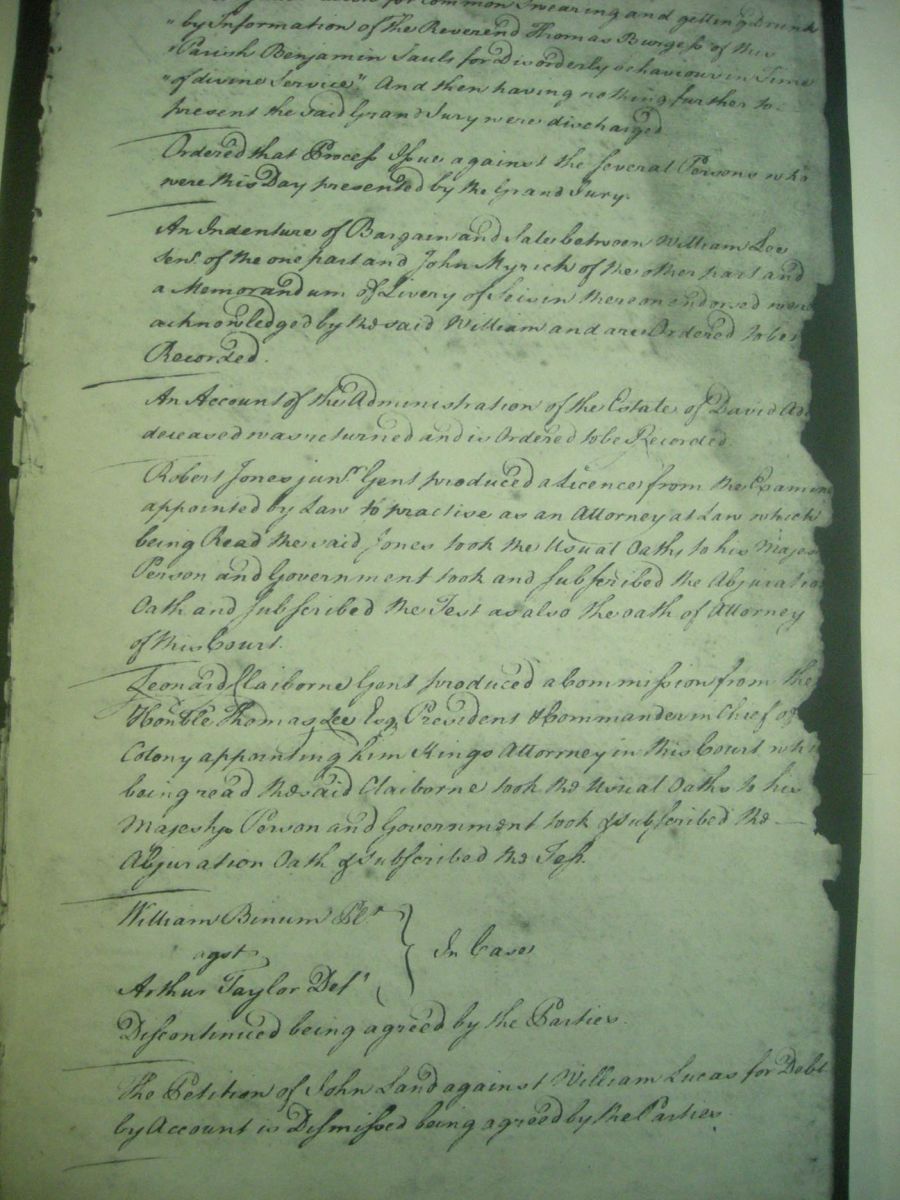 for Common Swearing and getting Drunk
"by Information of the Reverend Thomas Burgess of this
"Parish Benjamin Sauls for Disorderly behaviour in Time
"of divine Service" And then having nothing further to
present the said Grand Jury were discharged
Ordered that Process Issue against the several Persons who
were this Day presented by the Grand Jury.
An Indenture of Bargain and Sale between William Lee
Senr. of the one part and John Myrick of the other part and
a Memorandum of Livery of Seisin thereon endorsed were
acknowledged by the said William and are Ordered to be
Recorded.
An Account of the Administration of the Estate of David
deceased was returned and is Ordered to be Recorded.
Robert Jones junr. Gent produced a Licence from the Examine
appointed by Law to practise as an Attorney at Law which
being Read the said Jones took the Usual Oaths to his Majes
Person and Government took and subscribed the Abjuration
Oath and subscribed the Test as also the oath of Attorney
of this Court.
Leonard Claiborne Gent produced a Commission from the
Honble Thomas Lee Esq. President & Commander in Chief of
Colony appointing him Kings Attorney in this Court whi
being read the said Claiborne took the Usual Oaths to his
Majestys Person and Government took & subscribed the —
Abjuration Oath & subscribed the Test.
William Binum Plt
agst
Arthur Taylor Deft
In Case
Discontinued being agreed by the Parties.
The Petition of John Land against William Lucas for Debt
by Account is Dismissed being agreed by the Parties